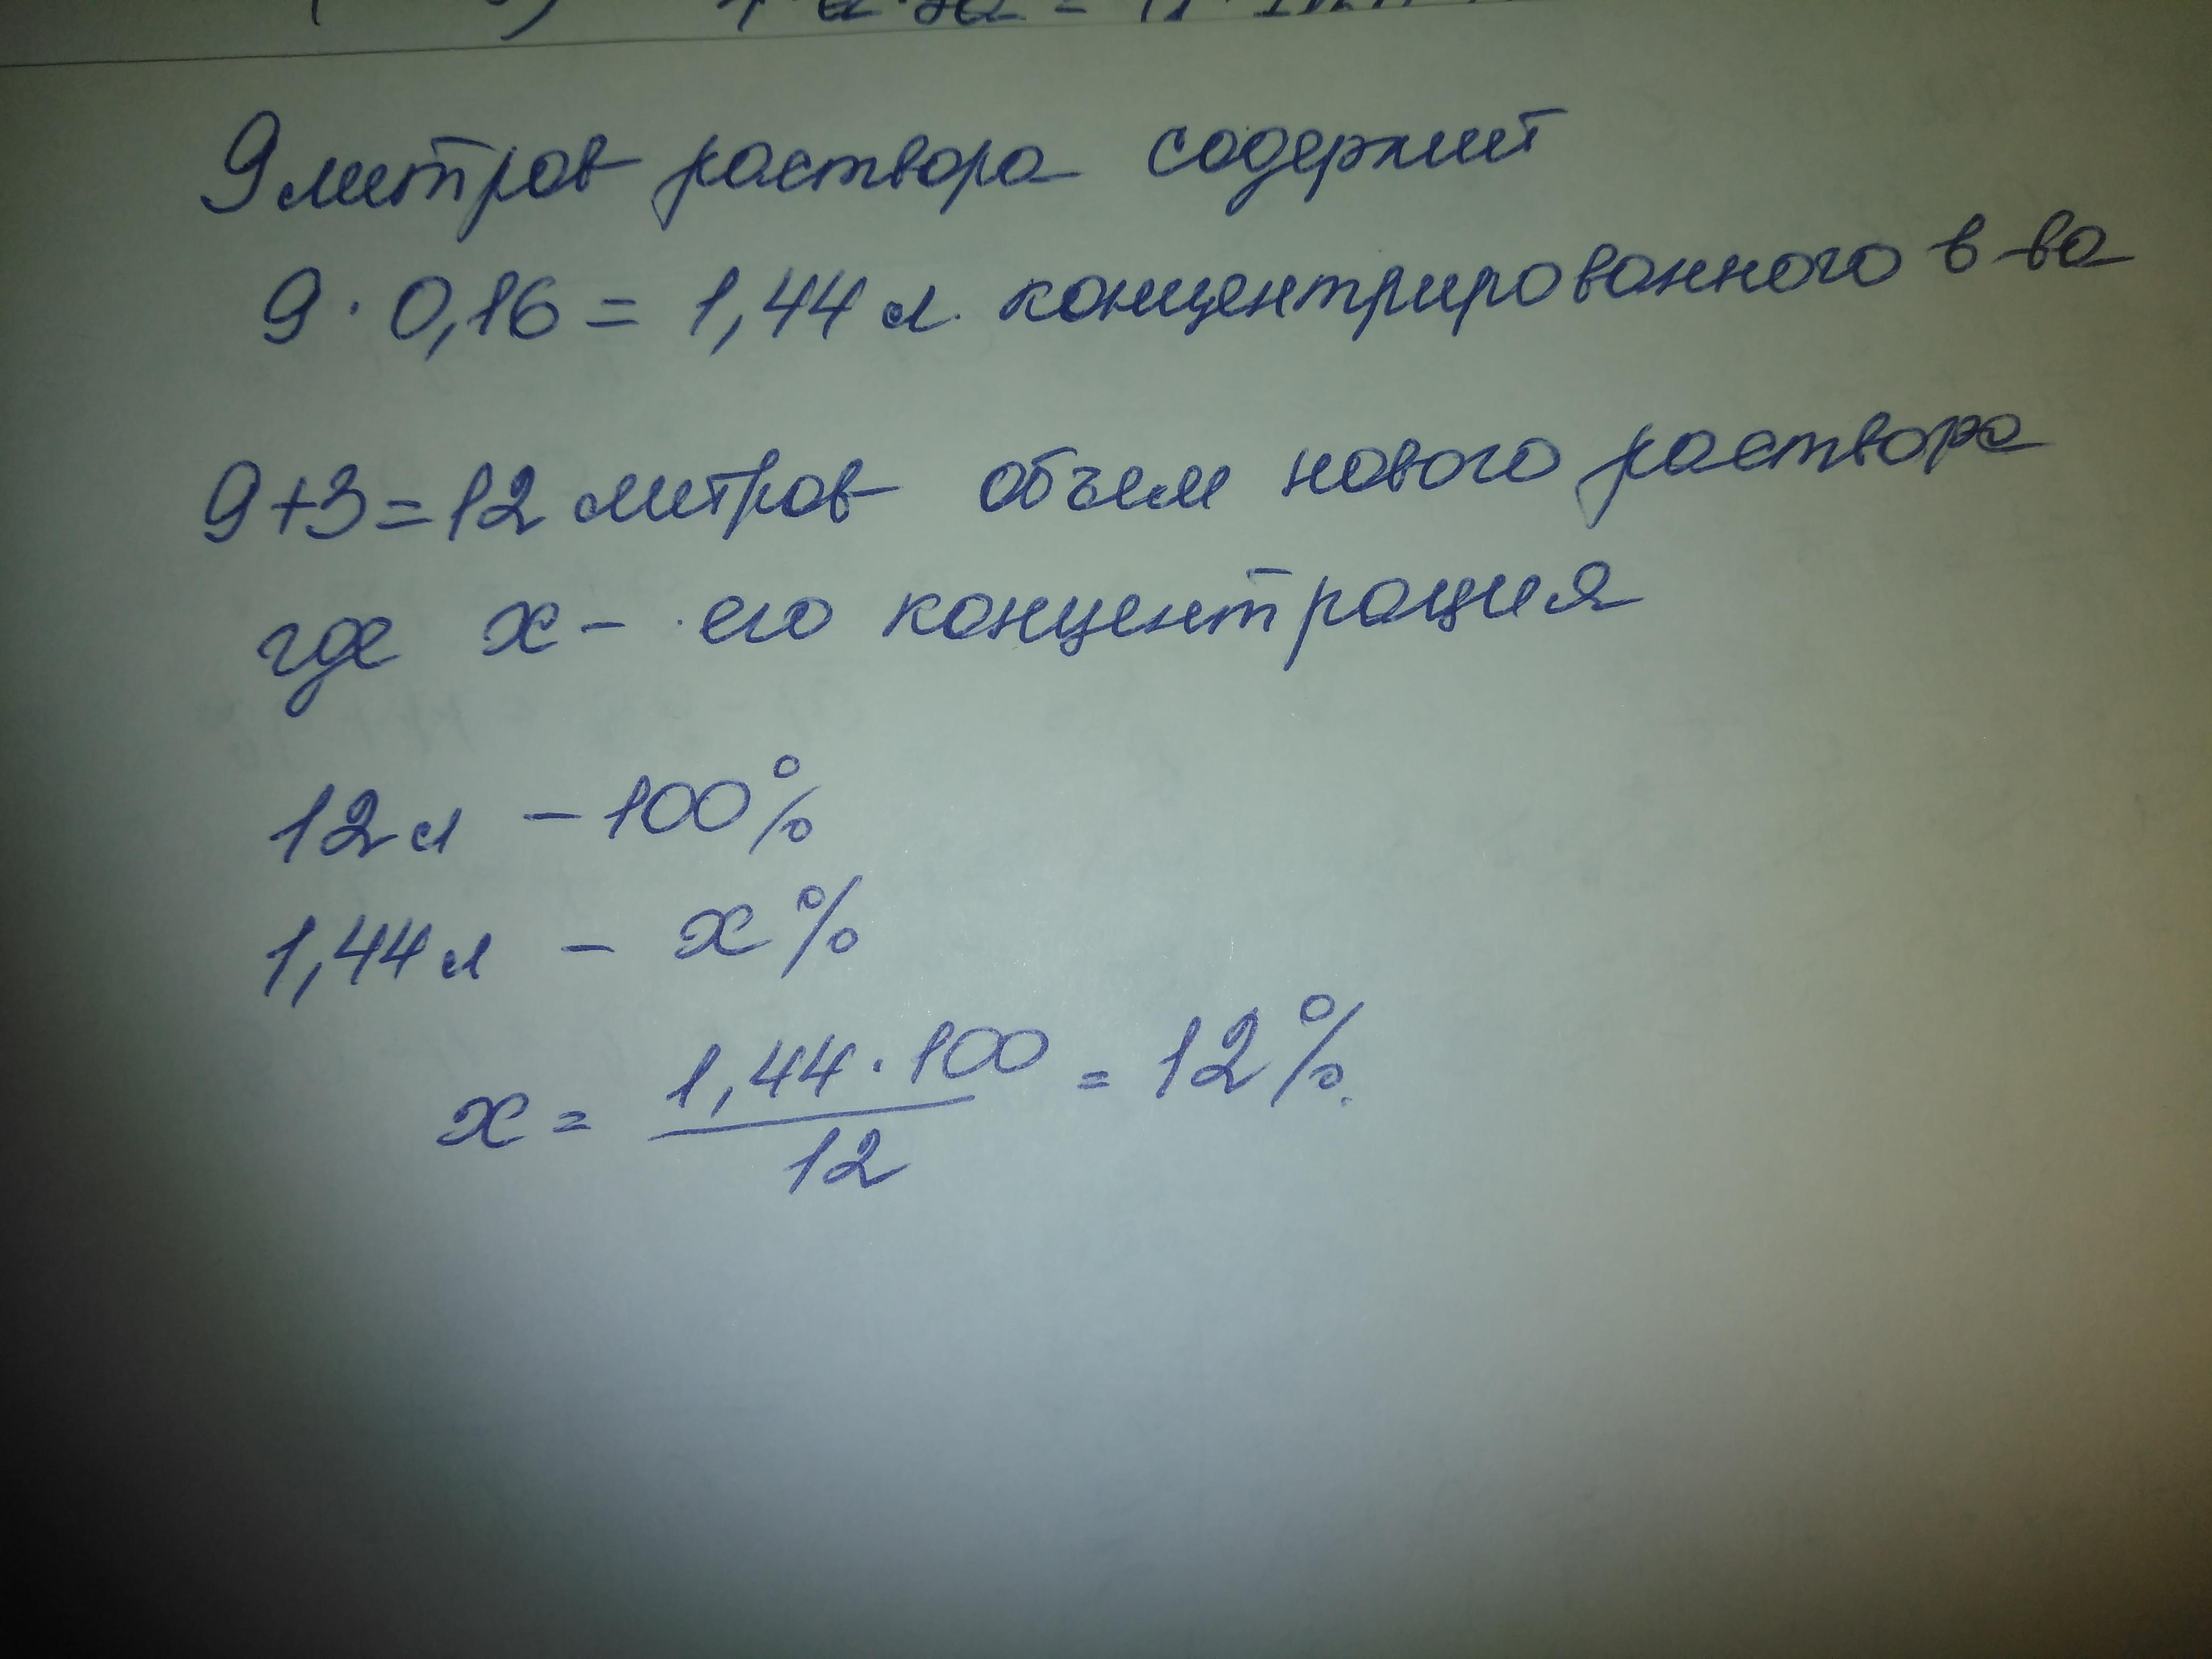 9 литров раствора содержит
9 · 0,16 = 1,44 л. концентрированного в-ва
9+3=12 литров объем нового раствора
где x - его концентрация
12 л - 100%
1,44 л - x%
x = 1,44 · 100 / 12 = 12%.